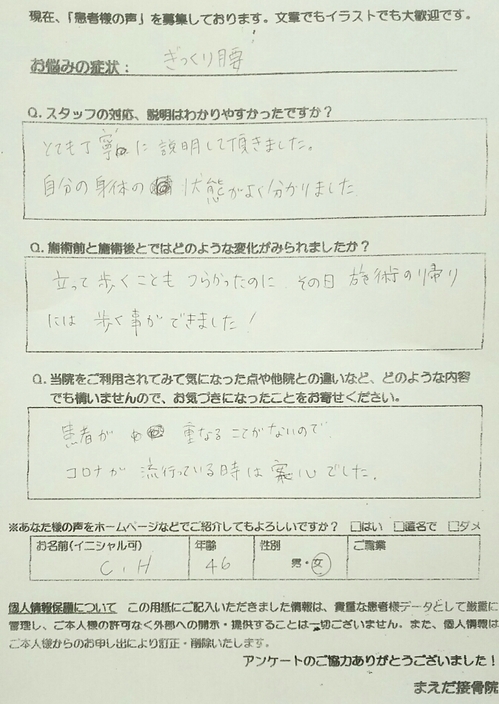 現在、「患者様の声」を募集しております。文章でもイラストでも大歓迎です。
お悩みの症状： ぎっくり腰
Q. スタッフの対応、説明はわかりやすかったですか？
とても丁寧に説明して頂きました。
自分の身体の状態がよく分かりました
Q. 施術前と施術後とではどのような変化がみられましたか？
立って歩くこともつらかったのに その日 施術の帰り
には 歩く事ができました！
Q. 当院をご利用されてみて気になった点や他院との違いなど、どのような内容
でも構いませんので、お気づきになったことをお寄せください。
患者が 重なることがないので
コロナが 流行っている時は 安心でした。
※あなた様の声をホームページなどでご紹介してもよろしいですか？ □はい □匿名で □ダメ
お名前(イニシャル可) 年齢 性別 ご職業
C.H 46 男・女
個人情報保護について この用紙にご記入いただきました情報は、貴重な患者様データとして厳重に
管理し、ご本人様の許可なく外部への開示・提供することは一切ございません。また、個人情報は
ご本人様からのお申し出により訂正・削除いたします。
アンケートのご協力ありがとうございました！
まえだ接骨院